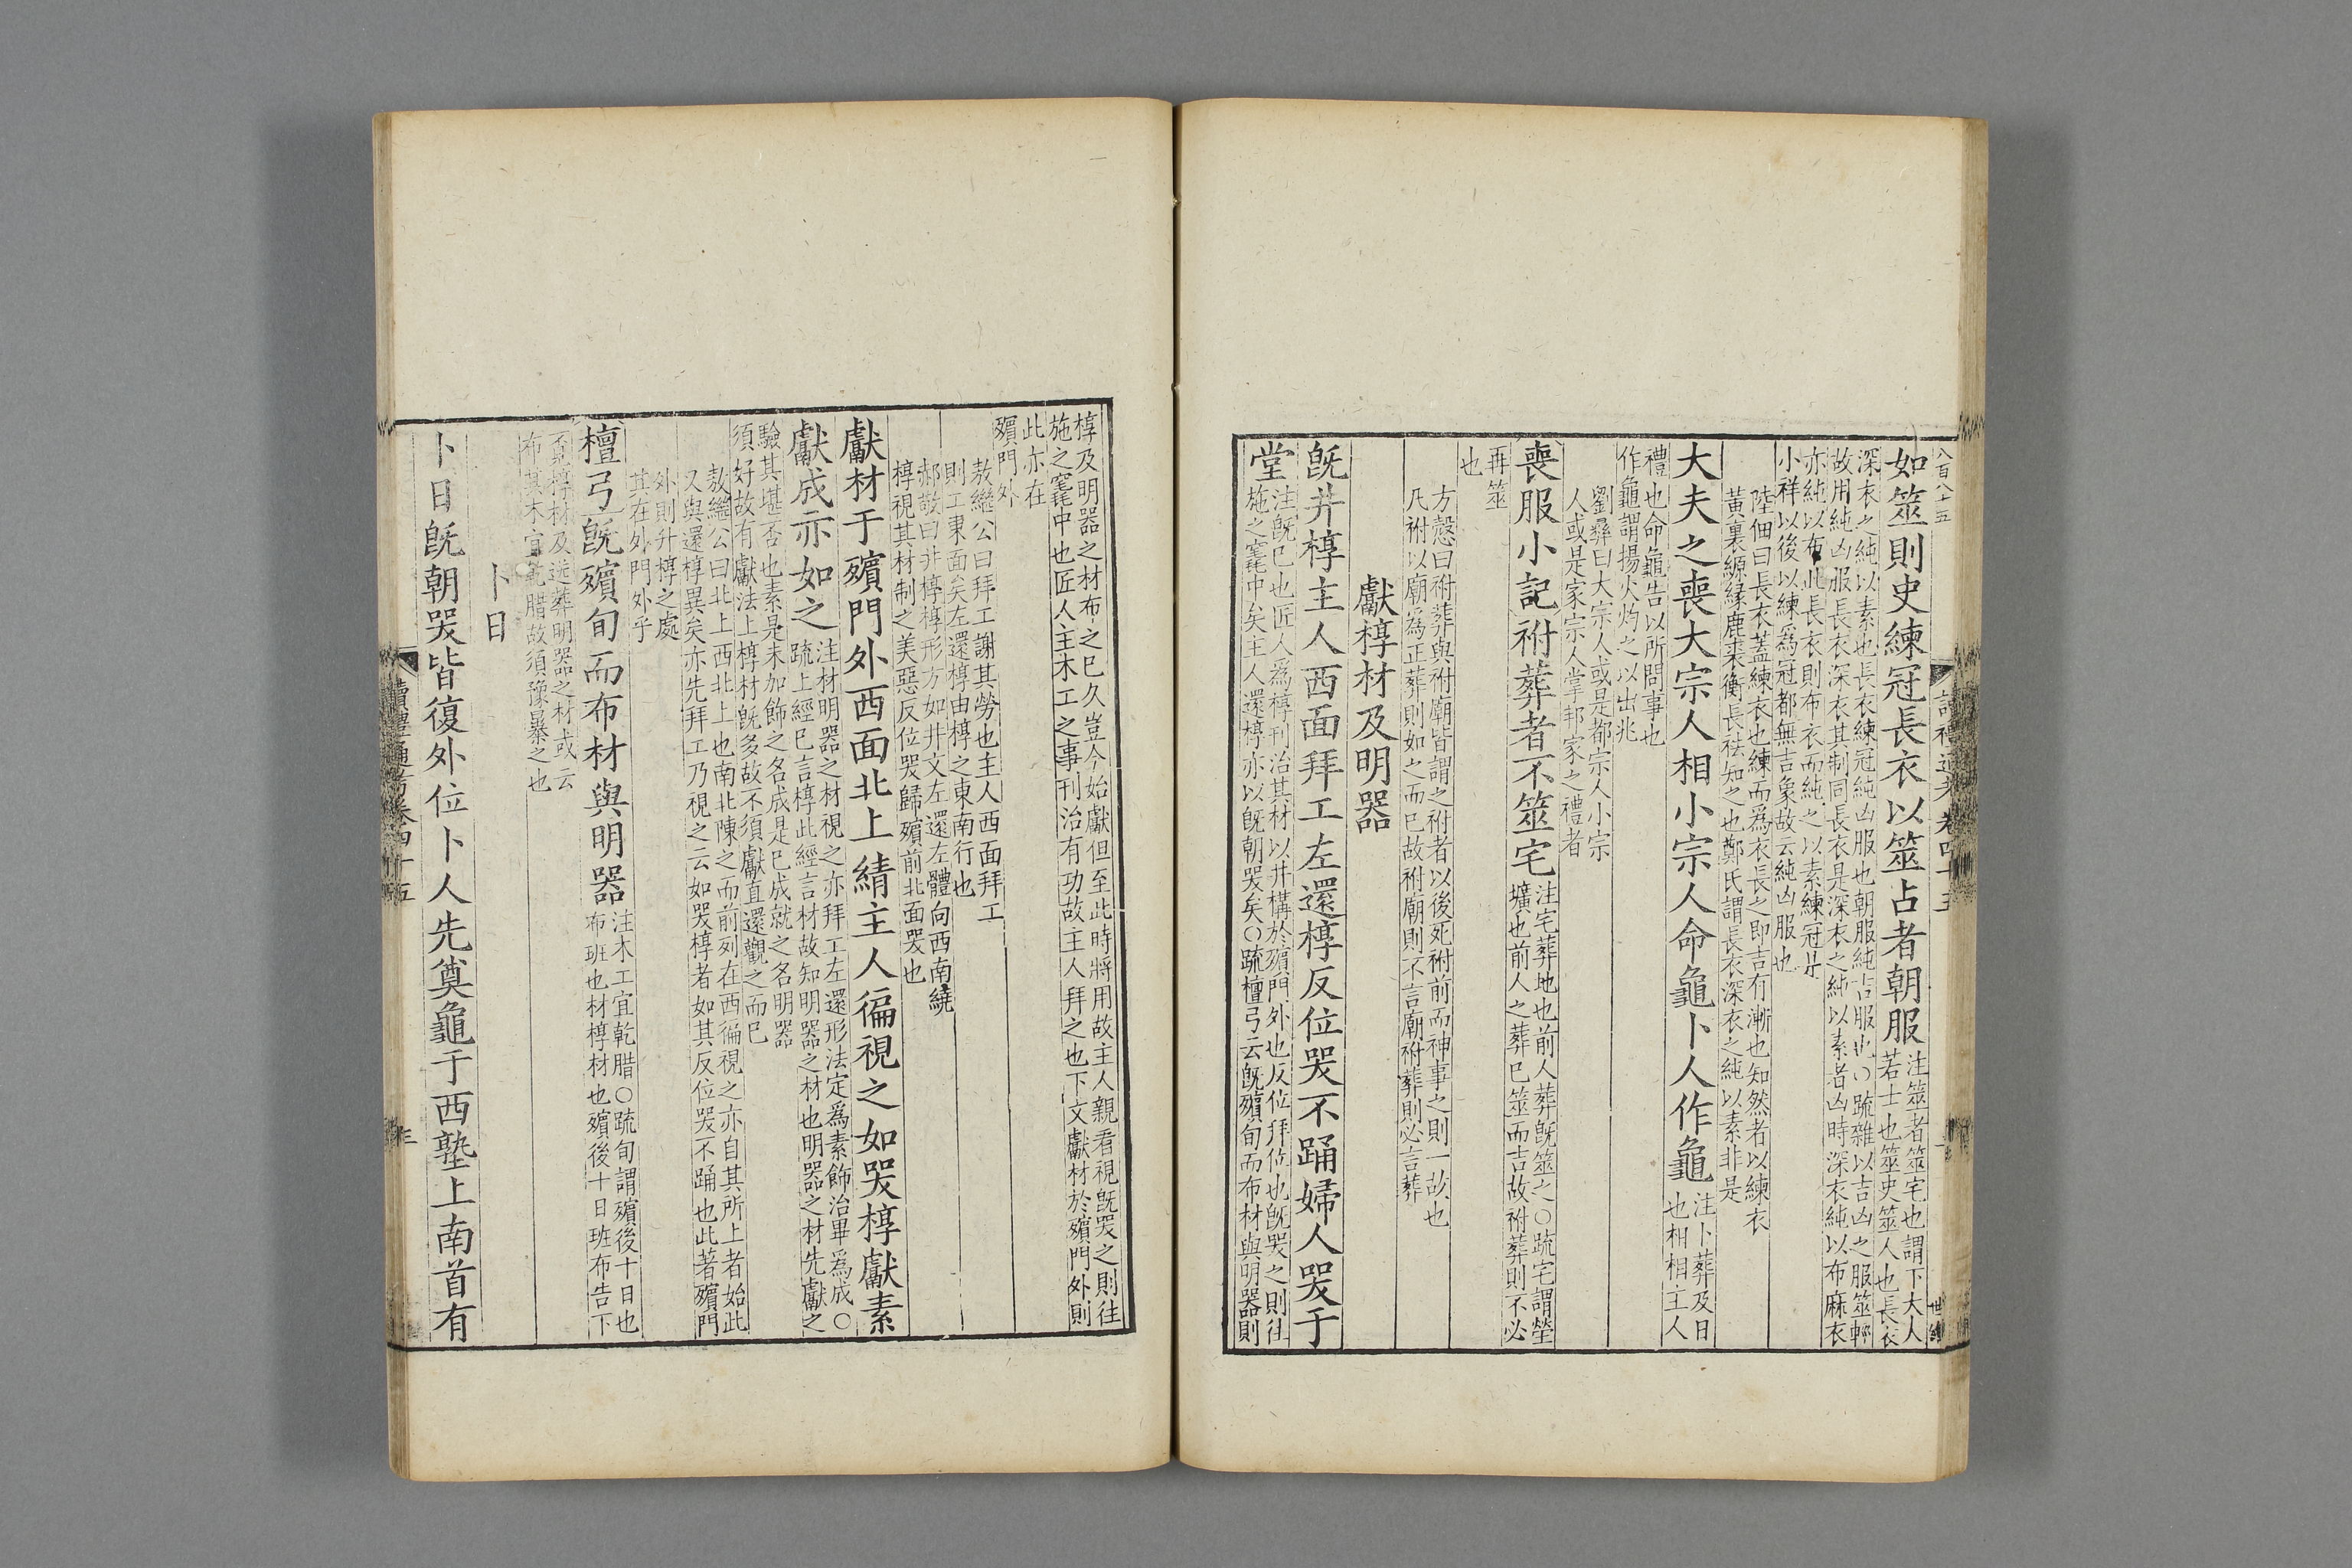 八百八十五
如筮則史練冠長衣以筮占者朝服
注筮者筮宅也謂下大人
若士也筮史筮人也長衣
深衣之純以素也長衣練冠純凶服也朝服純吉服也○疏雜以吉凶之服筮輕
故用純凶服長衣深衣其制同長衣是深衣之純以素者凶時深衣純以布麻衣
亦純以布此長衣則布衣而純之以素練冠
小祥以後以練爲冠都無吉象故云純凶服也
陸佃曰長衣蓋練衣也練而爲衣長之即吉有漸也知然者以練衣
黃裏縓緣鹿裘衡長袪知之也鄭氏謂長衣深衣之純以素非是
大夫之喪大宗人相小宗人命龜卜人作龜
注卜葬及日
也相相主人
禮也命龜告以所問事也
作龜謂揚火灼之以出兆
劉彝曰大宗人或是都宗人小宗
人或是家宗人掌邦家之禮者
喪服小記祔葬者不筮宅
注宅葬地也前人葬旣筮之○疏宅謂塋
壙也前人之葬已筮而吉故祔葬則不必
再筮
也
方慤曰祔葬與祔廟皆謂之祔者以後死祔前而神事之則一故也
凡祔以廟爲正葬則如之而已故祔廟則不言廟祔葬則必言葬
獻椁材及明器
旣井椁主人西面拜工左還椁反位哭不踊婦人哭于
堂
注旣已也匠人爲椁刊治其材以井構於殯門外也反位拜位也旣哭之則往
施之竁中矣主人還椁亦以旣朝哭矣○疏檀弓云旣殯旬而布材與明器則
椁及明器之材布之已久豈今始獻但至此時將用故主人親看視旣哭之則往
施之竁中也匠人主木工之事刊治有功故主人拜之也下文獻材於殯門外則
此亦在
殯門外
敖繼公曰拜工謝其勞也主人西面拜工
則工東面矣左還椁由椁之東南行也
郝敬曰井椁椁形方如井文左還左體向西南繞
椁視其材制之美惡反位哭歸殯前北面哭也
獻材于殯門外西面北上綪主人徧視之如哭椁獻素
獻成亦如之
注材明器之材視之亦拜工左還形法定爲素飾治畢爲成○
疏上經已言椁此經言材故知明器之材也明器之材先獻之
驗其堪否也素是未加飾之名成是已成就之名明器
須好故有獻法上椁材旣多故不須獻直還觀之而已
敖繼公曰北上西北上也南北陳之而前列在西徧視之亦自其所上者始此
又與還椁異矣亦先拜工乃視之云如哭椁者如其反位哭不踊也此著殯門
外則井椁之處
其在外門外乎
檀弓旣殯旬而布材與明器
注木工宜乾腊○疏旬謂殯後十日也
布班也材椁材也殯後十日班布告下
覓椁材及送葬明器之材或云
布其木宜乾腊故須豫暴之也
卜日
卜日旣朝哭皆復外位卜人先奠龜于西塾上南首有
讀禮通考卷四十五
三